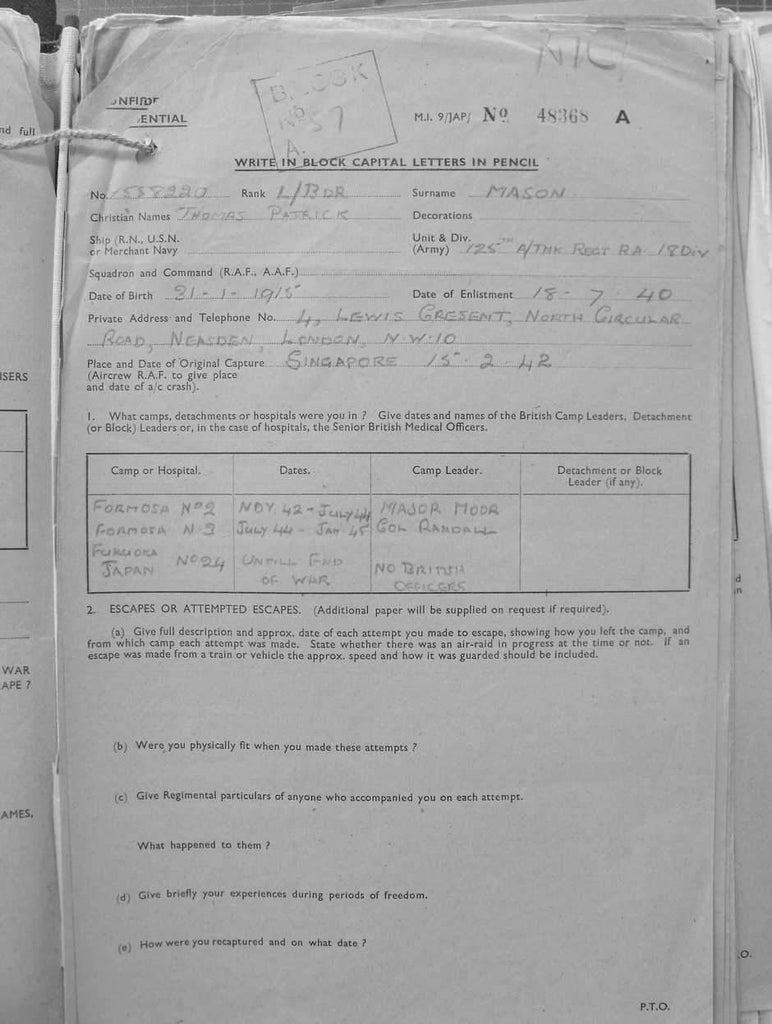 NIC
CONFIDE
ENTIAL
BLOCK
Nº 57
A.
M.I. 9/JAP/ Nº 48368 A
nd full
WRITE IN BLOCK CAPITAL LETTERS IN PENCIL
No. 1558220 Rank L/BDR Surname MASON
Christian Names THOMAS PATRICK Decorations
Ship (R.N., U.S.N. or Merchant Navy Unit & Div. (Army) 125TH A/TNK REGT RA 18 DIV
Squadron and Command (R.A.F., A.A.F.)
Date of Birth 21-1-1915 Date of Enlistment 18-7-40
Private Address and Telephone No. 4, LEWIS CRESENT, NORTH CIRCULAR
ROAD, NEASDEN, LONDON, N.W.10
Place and Date of Original Capture SINGAPORE 15.2.42
(Aircrew R.A.F. to give place
and date of a/c crash).
ISERS
1. What camps, detachments or hospitals were you in ? Give dates and names of the British Camp Leaders, Detachment
(or Block) Leaders or, in the case of hospitals, the Senior British Medical Officers.
Camp or Hospital. Dates. Camp Leader. Detachment or Block
Leader (if any).
FORMOSA Nº2 NOV 42 - JULY 44 MAJOR MOOR
FORMOSA N 3 JULY 44 - JAN 45 COL RANDALL
FUKUOKA
JAPAN Nº24 UNTILL END
OF WAR NO BRITISH
OFFICERS
2. ESCAPES OR ATTEMPTED ESCAPES. (Additional paper will be supplied on request if required).
(a) Give full description and approx. date of each attempt you made to escape, showing how you left the camp, and
from which camp each attempt was made. State whether there was an air-raid in progress at the time or not. If an
escape was made from a train or vehicle the approx. speed and how it was guarded should be included.
WAR
APE ?
(b) Were you physically fit when you made these attempts ?
(c) Give Regimental particulars of anyone who accompanied you on each attempt.
AMES,
What happened to them ?
(d) Give briefly your experiences during periods of freedom.
(e) How were you recaptured and on what date ?
P.T.O.